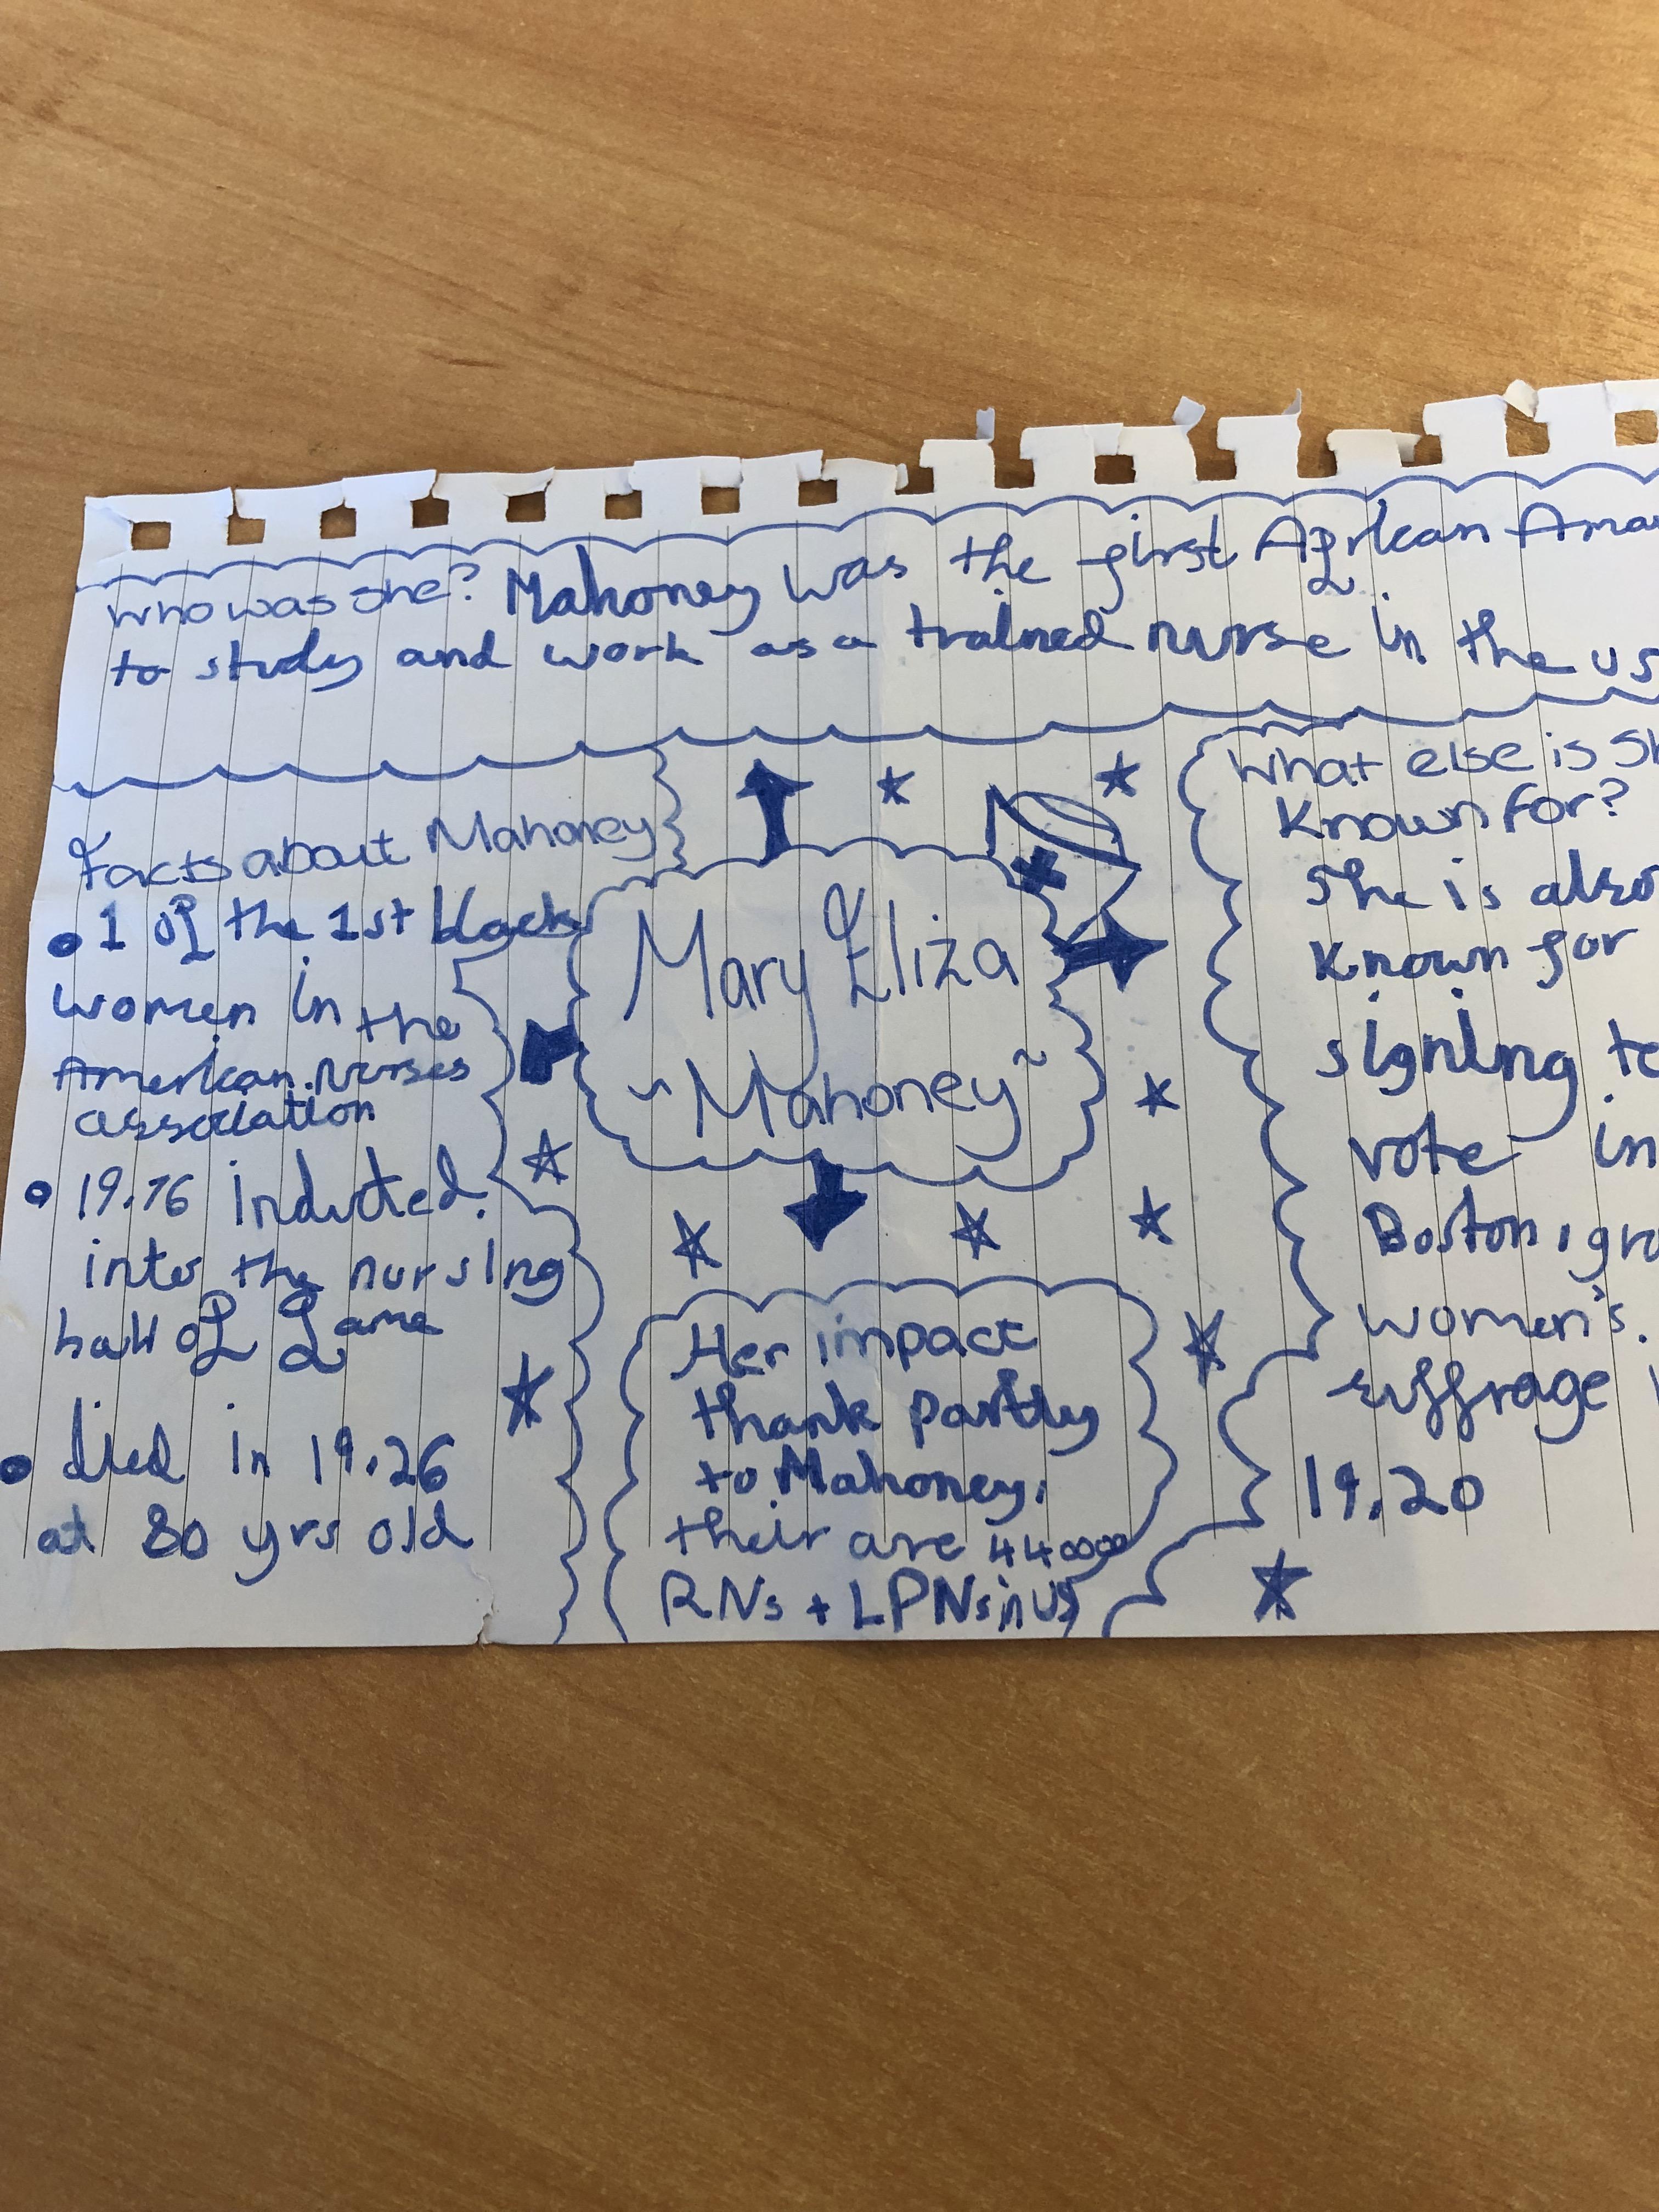 who was she? Mahoney was the first African Amar
to study and work as a trained nurse in the us
facts about Mahoney
• 1 of the 1st black
women in the
American nurses
association
• 19.76 inducted
into the nursing
hall of fame
• died in 19.26
at 80 yrs old
Mary Eliza
~ Mahoney ~
Her impact
thank partly
to Mahoney.
their are
RNs + LPNs in US
What else is sh
Known for?
She is also
known for
signing to
vote in
Boston, gro
women's.
suffrage
19.20